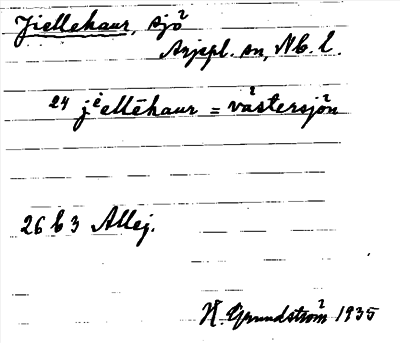 Jiellekaur, sjö
Arjepl. sn, Nb. l.
24 jiellēkaur = västersjön
26 b 3 Allej.
H. Grundström 1935